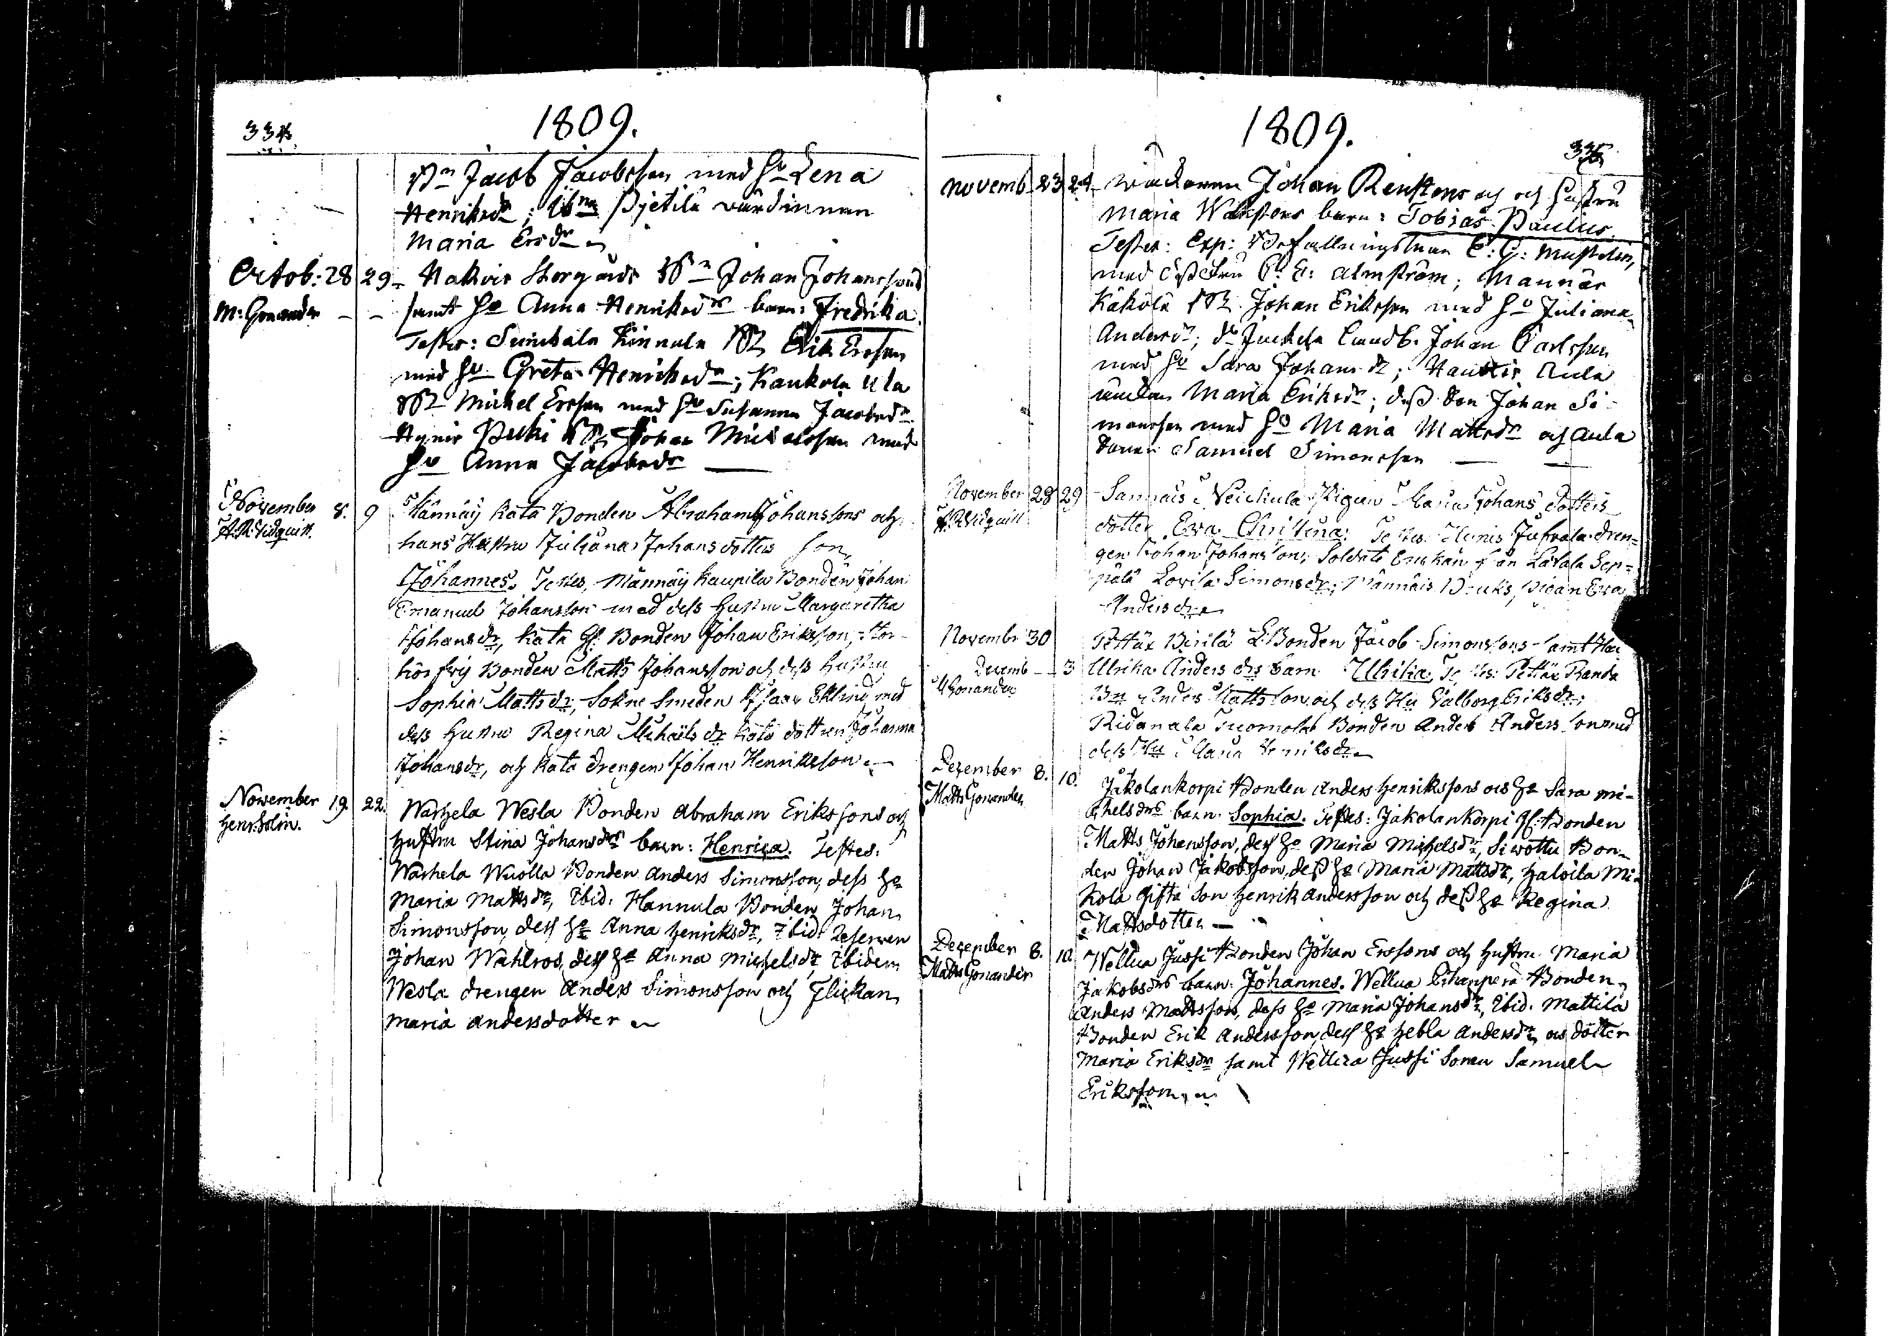 1809.
334
Bn Jacob Jacobsson med Hu Lena
Henriksdr; Pietilä värdinnan
Maria Ersdr
Octob: 28 29 Hakvis Storgårds Bn Johan Johanssons
M: Gonander samt Hu Anna Henriksdr barn: Fredrika.
Testes: Kinnala Erik Ersson
med Hu Greta Henriksdr; Kaukola Ula
Michel Ersson med Hu Susanna Jacobsdr
Pukki Johan Michelsson med
Hu Anna Jacobsdr
November 8. 9 Männäis Kata Bonden Abraham Johanssons och
A. Widquist. hans Hustru Juliana Johansdotters son,
Johannes. Testes, Männäis Kaupila Bonden Johan
Emanuel Johansson med dess hustru Margaretha
Johansdr, Kata Gl: Bonden Johan Eriksson,
Bonden Matts Johansson och dess hustru
Sophia Mattsdr, Sokne Smeden Isaac Eklund med
dess Hustru Regina Michelsdr Kata dottren Johanna
Johansdr, och Kata drengen Johan Henriksson
November 19. 22. Warhela Wesla Bonden Abraham Erikssons och
Henr: Solin. hustru Stina Johansdrs barn: Henrica. Testes:
Warhela Wuolla Bonden Anders Simonsson, dess Ha
Maria Mattsdr, Ibid. Hannula Bonden Johan
Simonsson, dess Ha Anna Henriksdr, Ibid:
Johan Wahlroos, dess Ha Anna Michelsdr, Ibidem
Wesla drengen Anders Simonsson och Flickan
Maria Andersdotter
1809.
335
Novemb 23 24 Johan Renstens och och Hustru
Maria barn: Tobias Paulus.
Testes: Exp: Befallningsman C: G: Mustelin,
med Fru Almström; Mannäis
Käkölä Johan Eriksson med Hu Juliana
Andersdr; Landb. Johan Carlsson
med Hu Sara Johansdr; Aula
änckan Maria Eriksdr; dess Son Johan Si-
monsson med Hu Maria Mattsdr och Aula
Samuel Simonsson
November 28 29 Sannais Neickula Pigan Maria Johans dotters
A. Widquist dotter Eva Christina: Testes: dren-
gen Johan Johansson, Soldats Enckan från
Lovisa Simonsdr, Männäis Pigan Eva
Andersdr
Novembr 30 Pettäx Pirilä L: Bonden Jacob Simonssons samt Hu
Decemb 3 Ulrika Andersdrs barn Ulrika, Testes: Pettäx Ranta
M Gonander Bn Anders Mattsson och dess Hu Valborg Eriksdr;
Bonden Anders Andersson med
dess Hu Maria Henriksdr
December 8. 10. Jakolankorpi Bonden Anders Henrikssons och Ha Sara Mi-
Matts Gonander chelsdrs barn: Sophia. Testes: Jakolankorpi Gl: Bonden
Matts Johansson, dess Ha Maria Michelsdr, Siwottu Bon-
den Johan Jakobsson, dess Ha Maria Mattsdr, Haloila Mi-
kola gifta Son Henrik Andersson och dess Ha Regina
Mattsdotter
December 8. 10. Wellua Jussi Bonden Johan Erssons och Hustru Maria
Matts Gonander Jakobsdrs barn: Johannes. Wellua Bonden
Anders Mattsson, dess Ha Maria Johansdr, Ibid. Mattila
Bonden Erik Andersson, dess Ha Hebla Andersdr och dotter
Maria Eriksdr samt Wellua Jussi Sonen Samuel
Eriksson